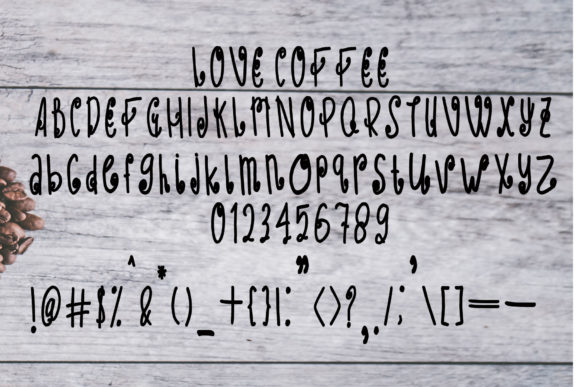 LOVE COFFEE
ABCDEFGHIJKLMNOPQRSTUVWXYZ
abcdefghijklmnopqrstuvwxyz
0123456789
^ * " '
!@#$% & ()_+{}|: <>? ,. /; \[]=-